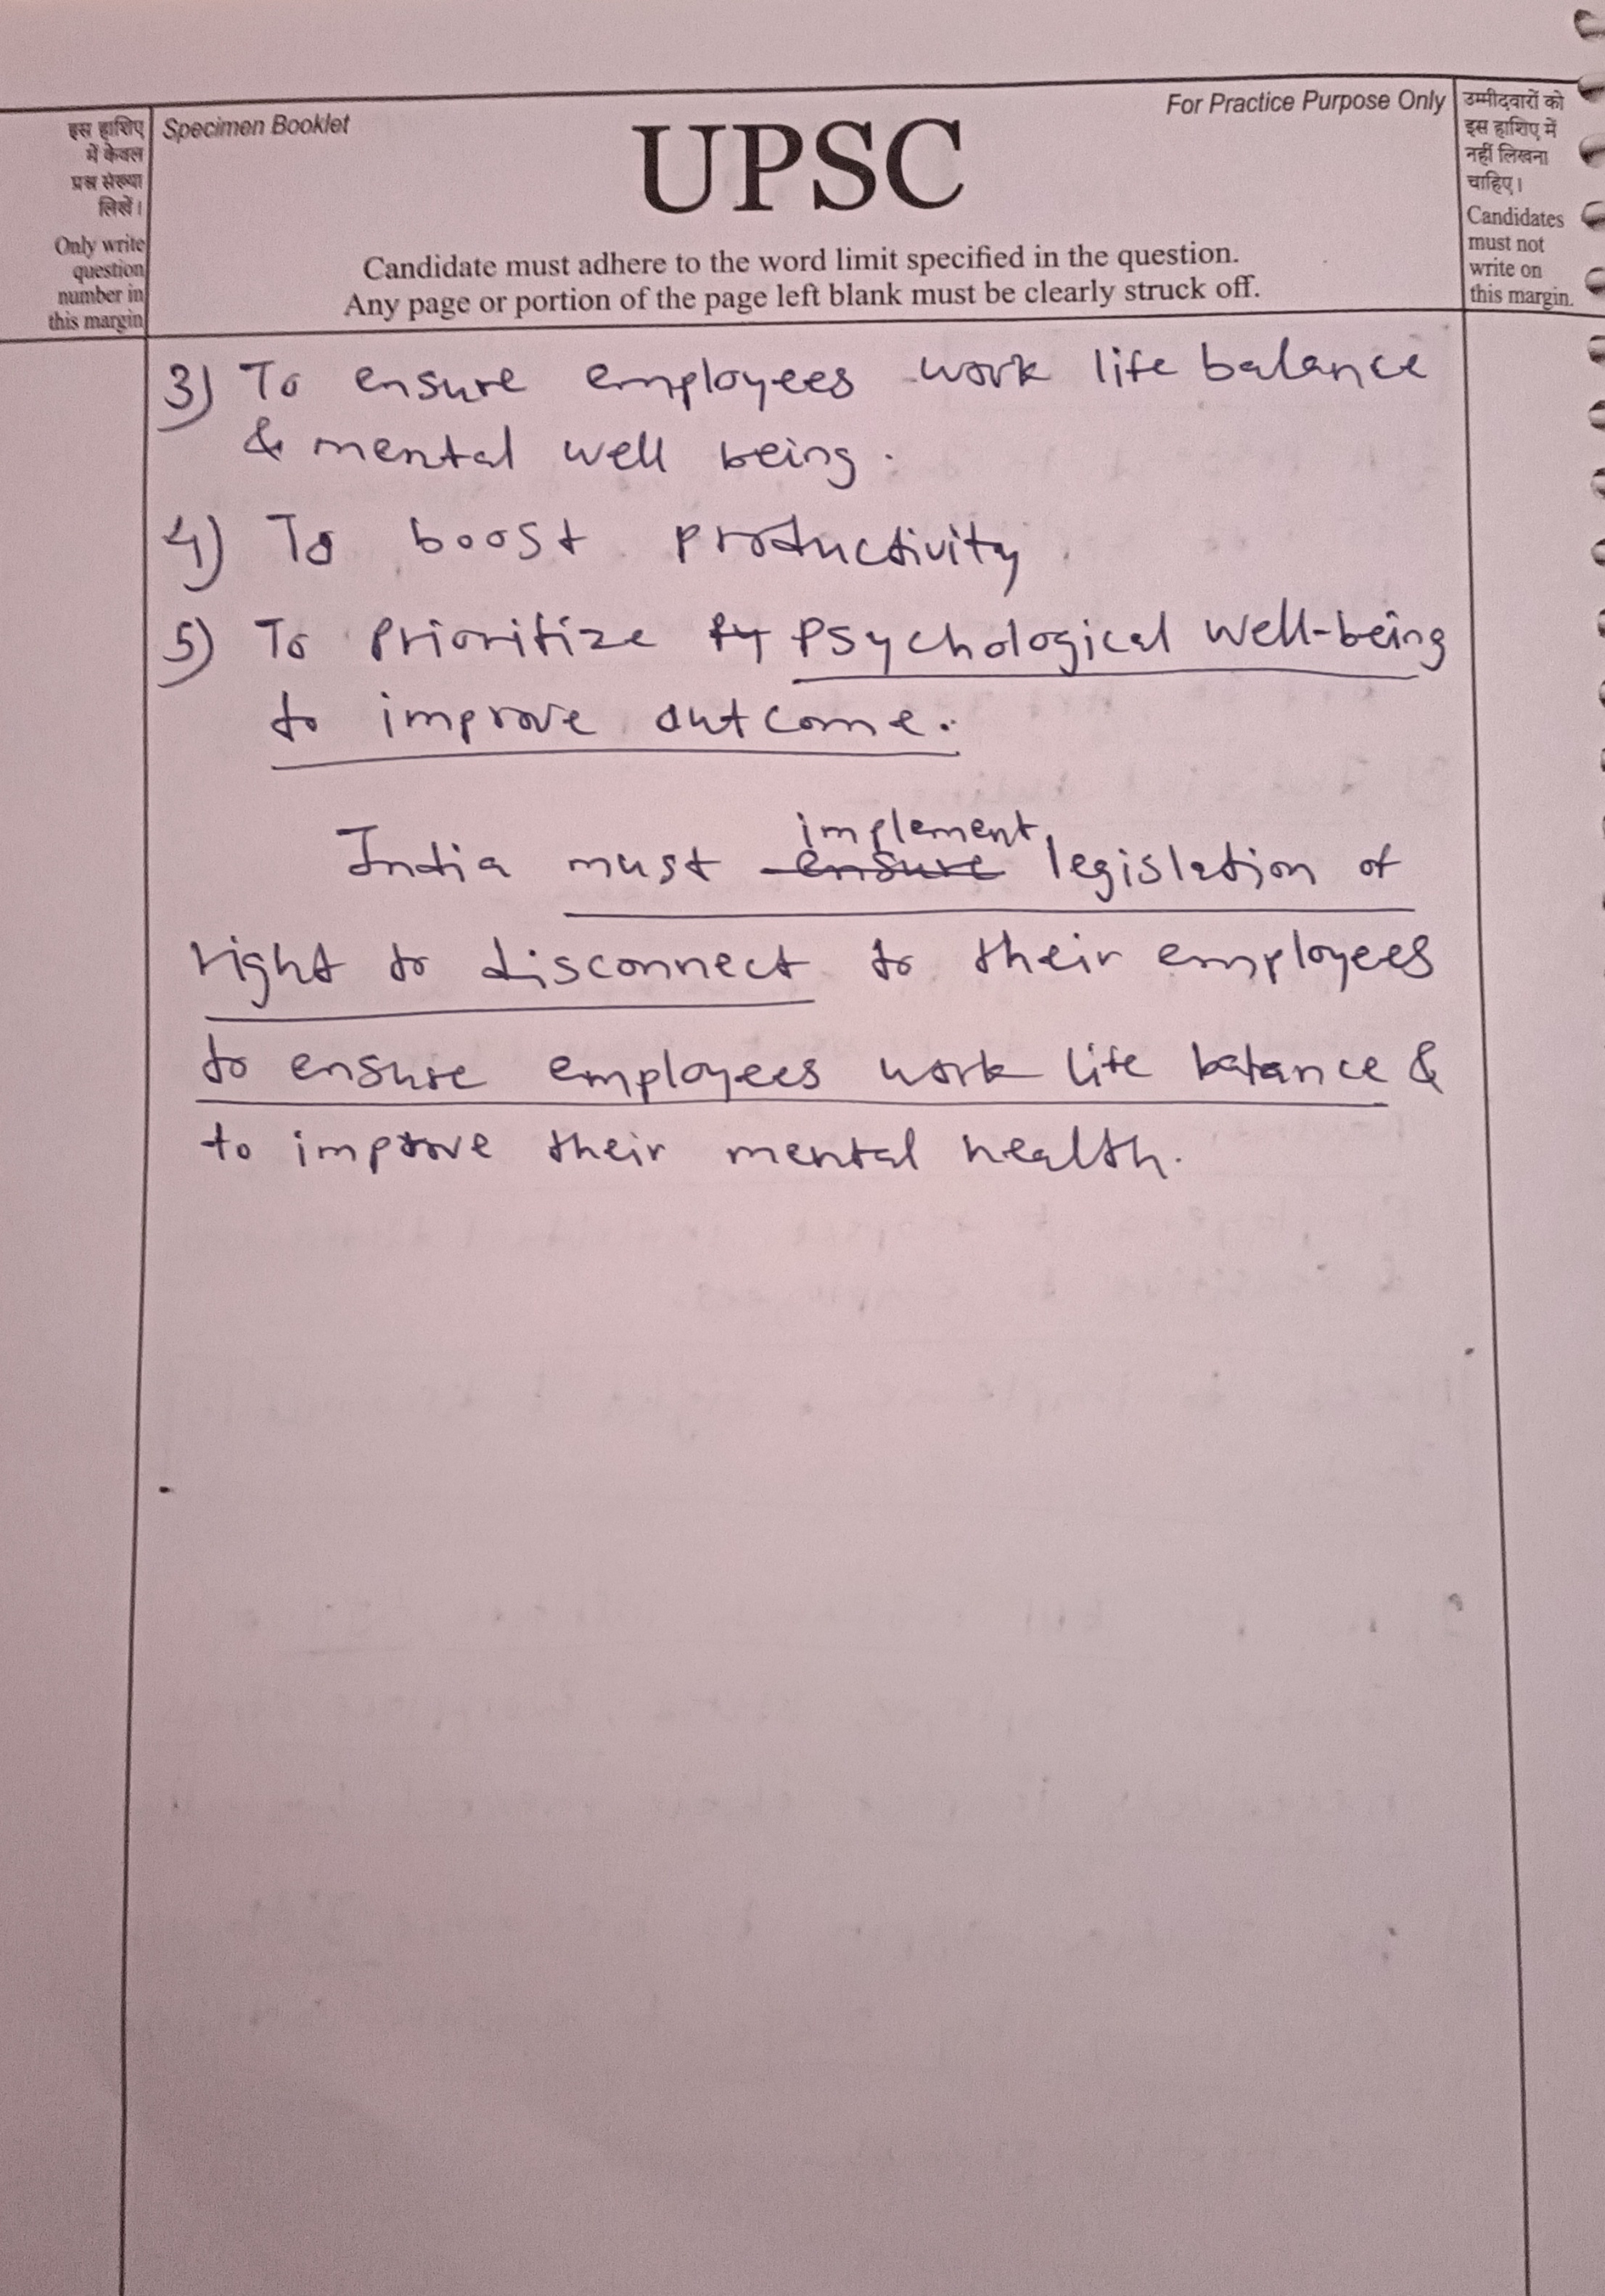 इस हाशिए में केवल प्रश्न संख्या लिखें।
Only write question number in this margin
Specimen Booklet
UPSC
For Practice Purpose Only
उम्मीदवारों को इस हाशिए में नहीं लिखना चाहिए।
Candidates must not write on this margin.
Candidate must adhere to the word limit specified in the question.
Any page or portion of the page left blank must be clearly struck off.
3) To ensure employees work life balance
& mental well being.
4) To boost productivity
5) To prioritize Psychological well-being
to improve outcome.
implement
India must ensure legislation of
right to disconnect to their employees
to ensure employees work life balance &
to improve their mental health.